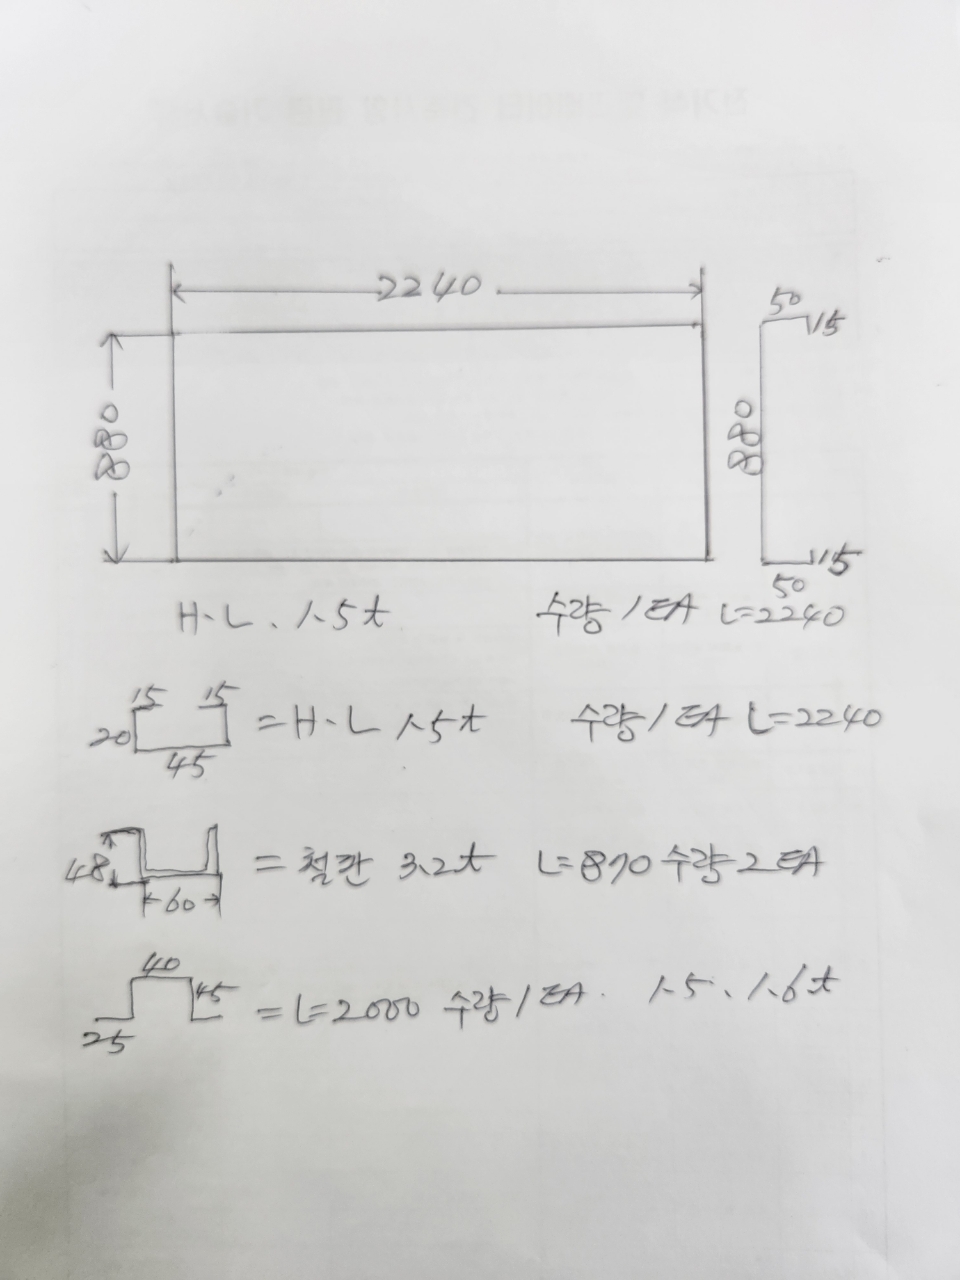 2240
50
15
880
880
15
50
H·L. 1.5t 수량 1EA L=2240
15 15
20
45
= H·L 1.5t 수량 1EA L=2240
48
60
= 철판 3.2t L=870 수량 2EA
40
45
25
= L=2000 수량 1EA. 1.5. 1.6t